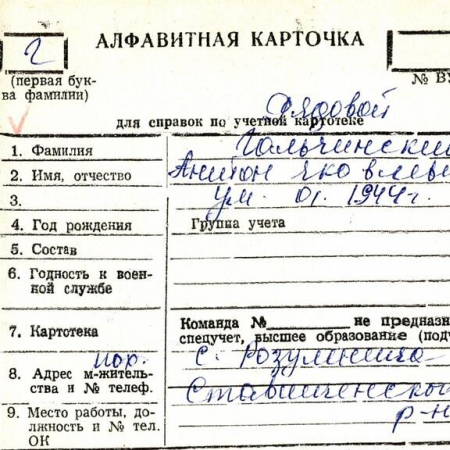 Г
АЛФАВИТНАЯ КАРТОЧКА
(первая бук-
ва фамилии)
№ ВУ
Рядовой
для справок по учетной картотеке
1. Фамилия Гальчинский
2. Имя, отчество Антон Яковлев
3. ум. 01. 1944г.
4. Год рождения Группа учета
5. Состав
6. Годность к воен-
ной службе
7. Картотека Команда № не предназн
спецучет, высшее образование (под
8. Адрес м-житель-
ства и № телеф. пор. с. Розумница
Ставищенской
9. Место работы, до-
лжность и № тел.
ОК р-н